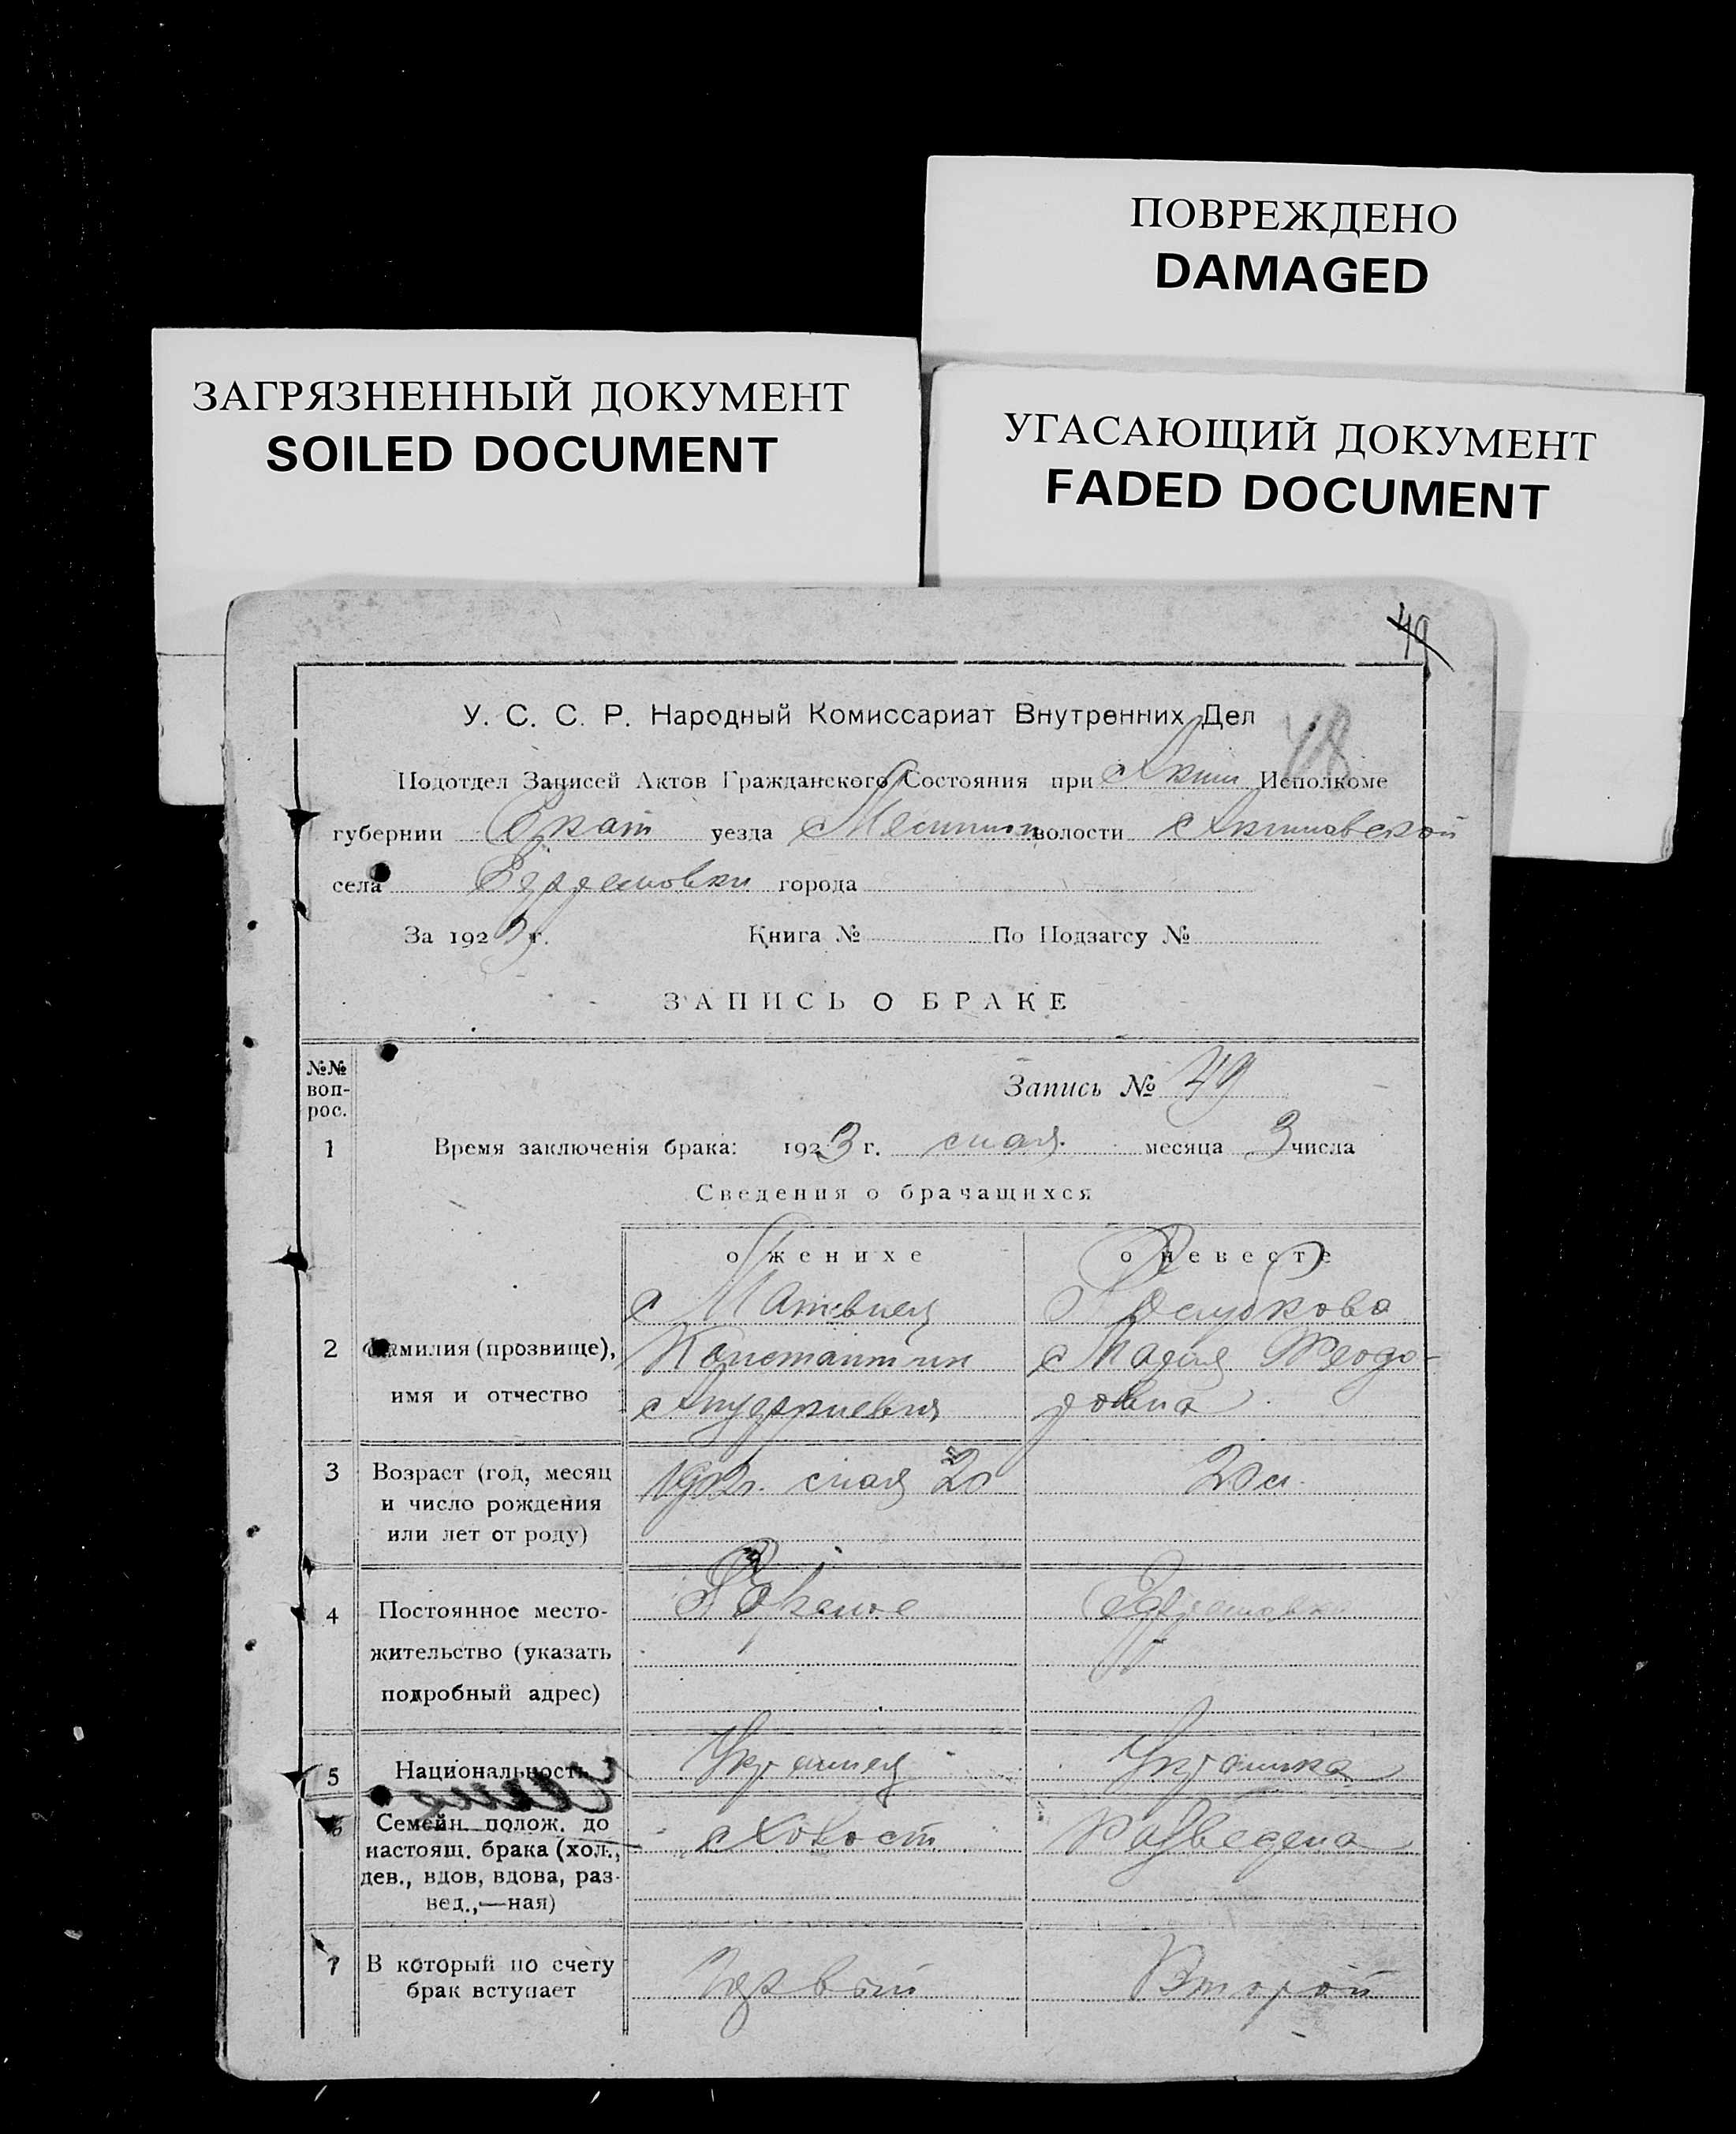 ПОВРЕЖДЕНО
DAMAGED
ЗАГРЯЗНЕННЫЙ ДОКУМЕНТ
SOILED DOCUMENT
УГАСАЮЩИЙ ДОКУМЕНТ
FADED DOCUMENT
49
48
У. С. С. Р. Народный Комиссариат Внутренних Дел
Подотдел Записей Актов Гражданского Состояния при Исполкоме
губернии уезда волости
села города
За 1923 г. Книга № По Подзагсу №
ЗАПИСЬ О БРАКЕ
№№ воп-рос.
Запись № 49
1 Время заключенія брака: 1923 г. мая месяца 3 числа
Сведения о брачащихся
о женихе о невесте
2 Фамилия (прозвище),
имя и отчество
Матвиец
Константин
Андреевич
Мария Феодо-
ровна
3 Возраст (год, месяц
и число рождения
или лет от роду)
1902 г. мая 20
20 л.
4 Постоянное место-
жительство (указать
подробный адрес)
5 Национальность
Украинец Украинка
6 Семейн. полож. до
настоящ. брака (хол.,
дев., вдов, вдова, раз-
вед.,—ная)
Холост Разведена
7 В который по счету
брак вступает
Первый Второй